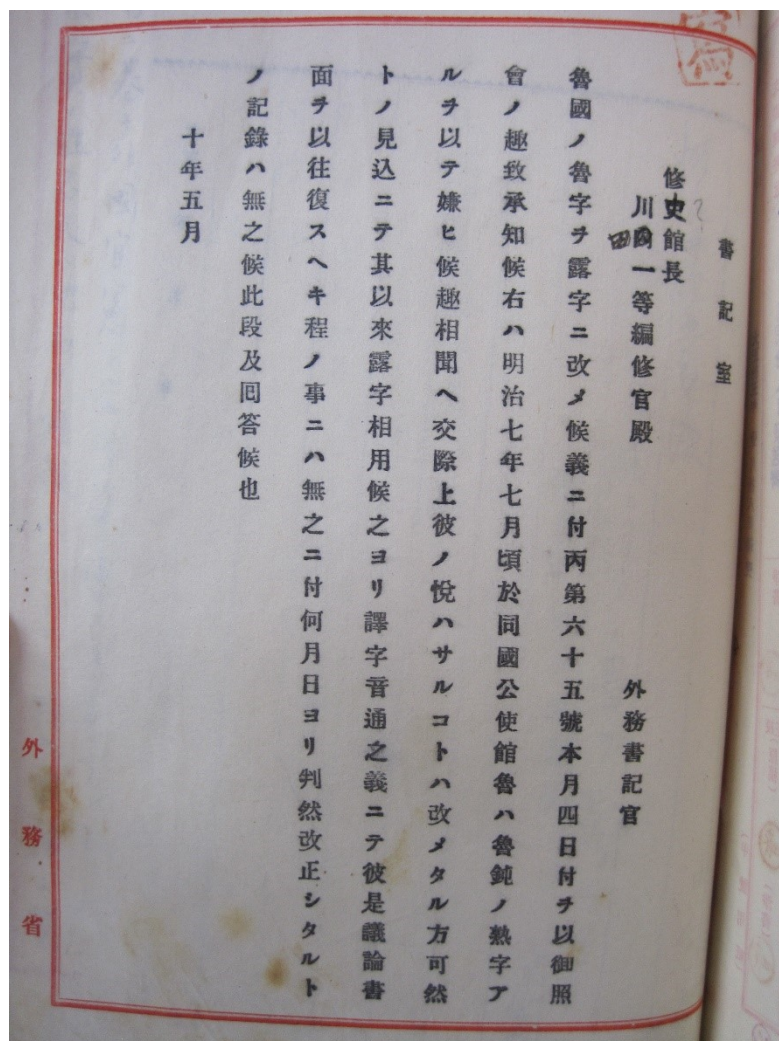 書記室
修史館長
川田一等編修官殿
外務書記官
魯國ノ魯字ヲ露字ニ改メ候義ニ付丙第六十五號本月四日付ヲ以御照
會ノ趣致承知候右ハ明治七年七月頃於同國公使館魯ハ魯鈍ノ熟字ア
ルヲ以テ嫌ヒ候趣相聞ヘ交際上彼ノ悅ハサルコトハ改メタル方可然
トノ見込ニテ其以來露字相用候之ヨリ譯字音通之義ニテ彼是議論書
面ヲ以往復スヘキ程ノ事ニハ無之ニ付何月日ヨリ判然改正シタルト
ノ記錄ハ無之候此段及囘答候也
十年五月
外務省